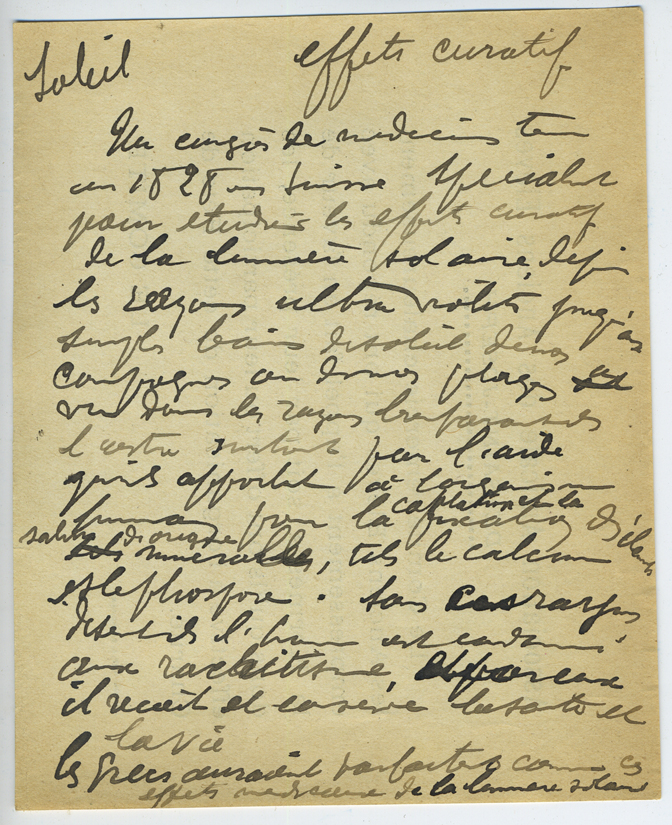 Soleil effets curatif
Un congrès de medecins tenu
en 1828 en Suisse Specialement
pour etudier les effets curatif
de la lumière solaire, depuis
les rayons ultra violets jusqu'aux
simples bains de soleil de nos
campagnes ou de nos plages
vu dans les rayons bienfaisants de
l'astre surtout par l'aide
qu'ils apportent à l'organisme
humain pour la captation et la fixation des éléments
salins d'origine minerale, tels le calcium
et le phosfore. Sans ces rayons
l'homme est condamné
aux rachitisme, par eux
il recoit et conserve la santé et
la vie
les grecs auraient parfaitement connu ces
effets de la lumière solaire